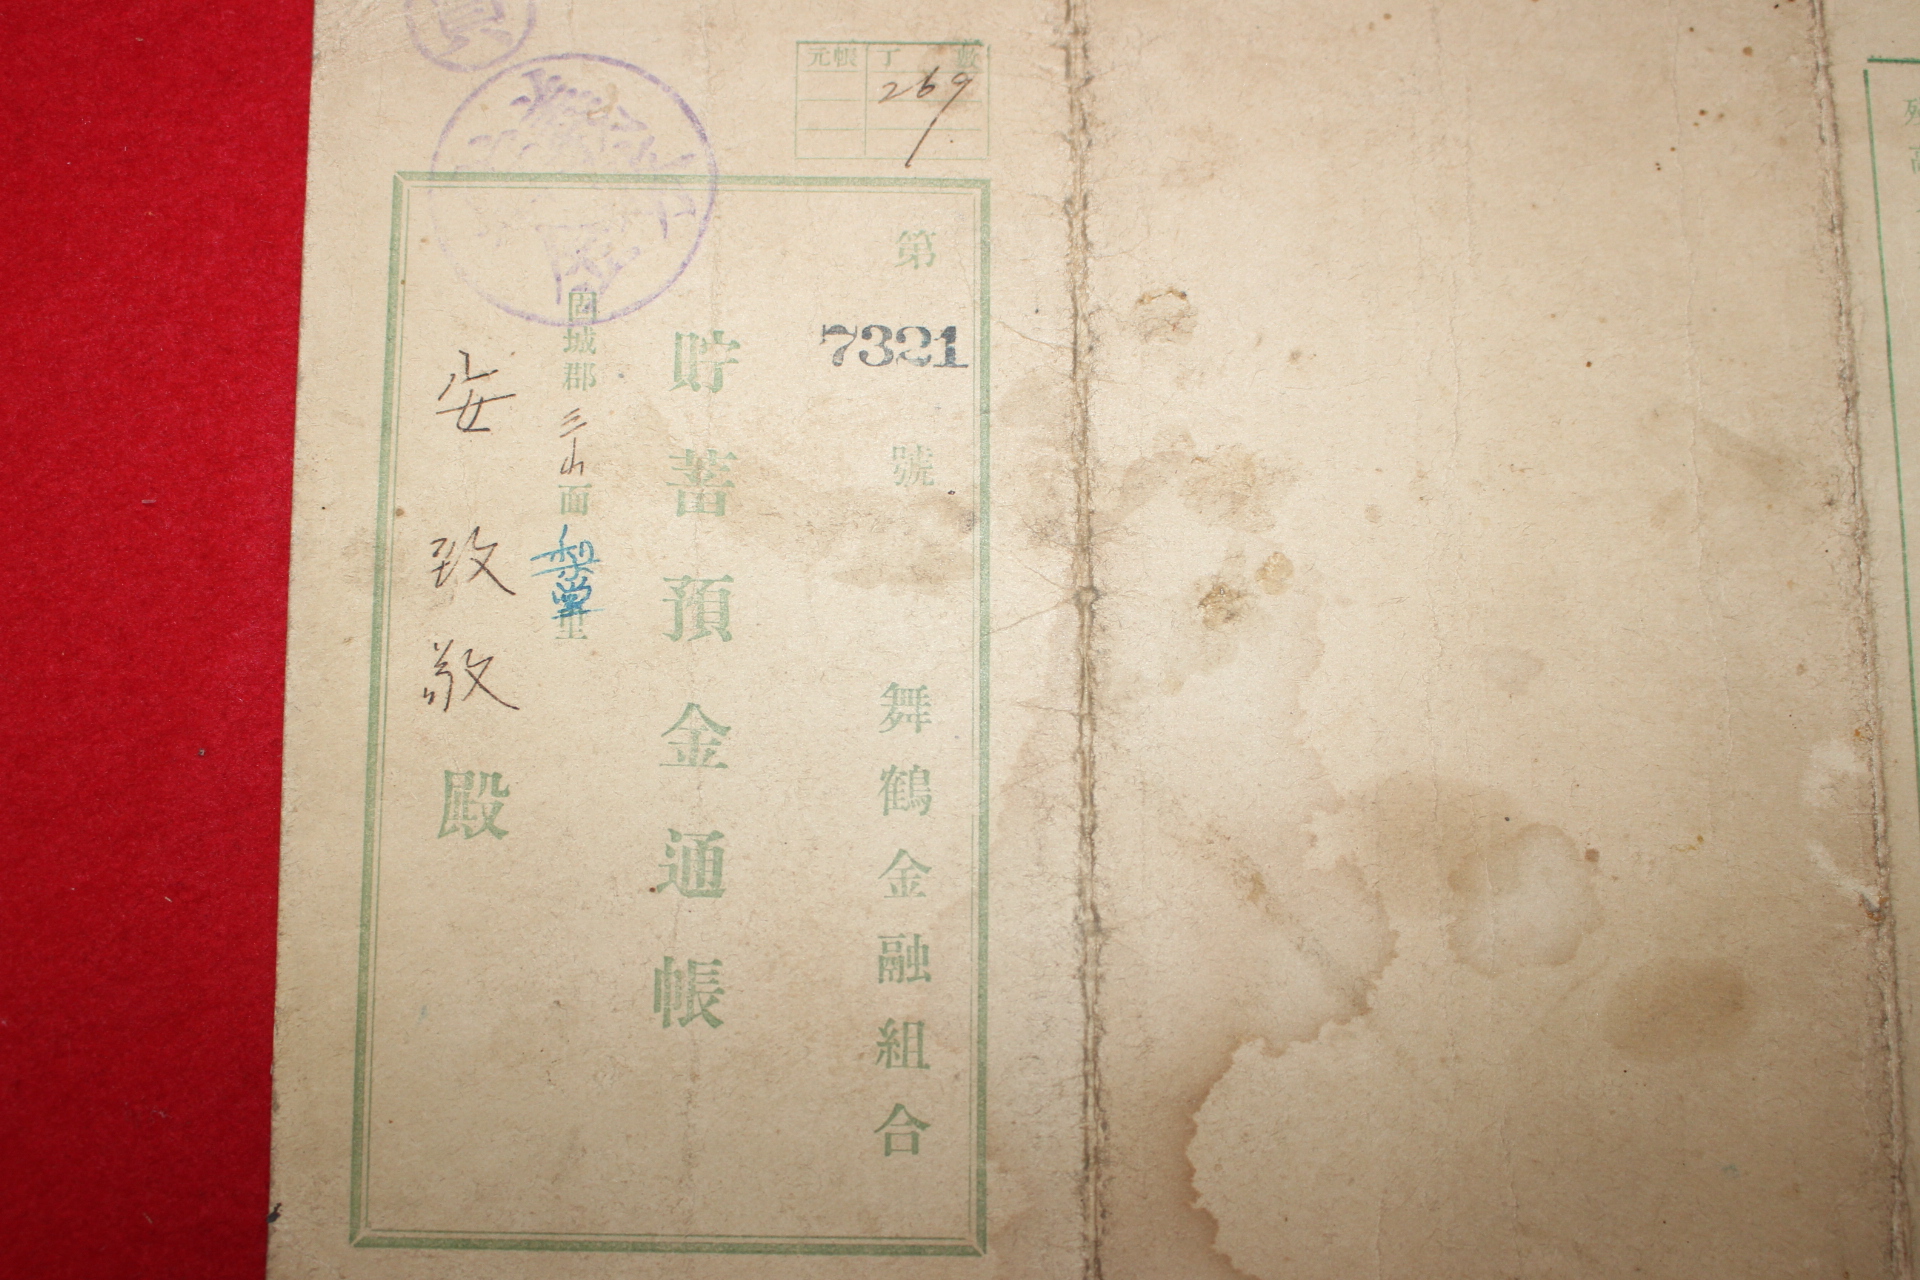 元帳 丁數
269
第 7321 號 舞鶴金融組合
貯蓄預金通帳
固城郡三山面梨堂里
安致敬殿